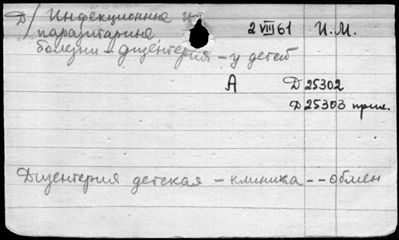 Д/ Инфекционные и 2 VIII 61 И.М.
паразитарные
болезни – дизентерия – у детей
А Д 25302
Д 25303 прил.
Дизентерия детская – клиника – – обмен